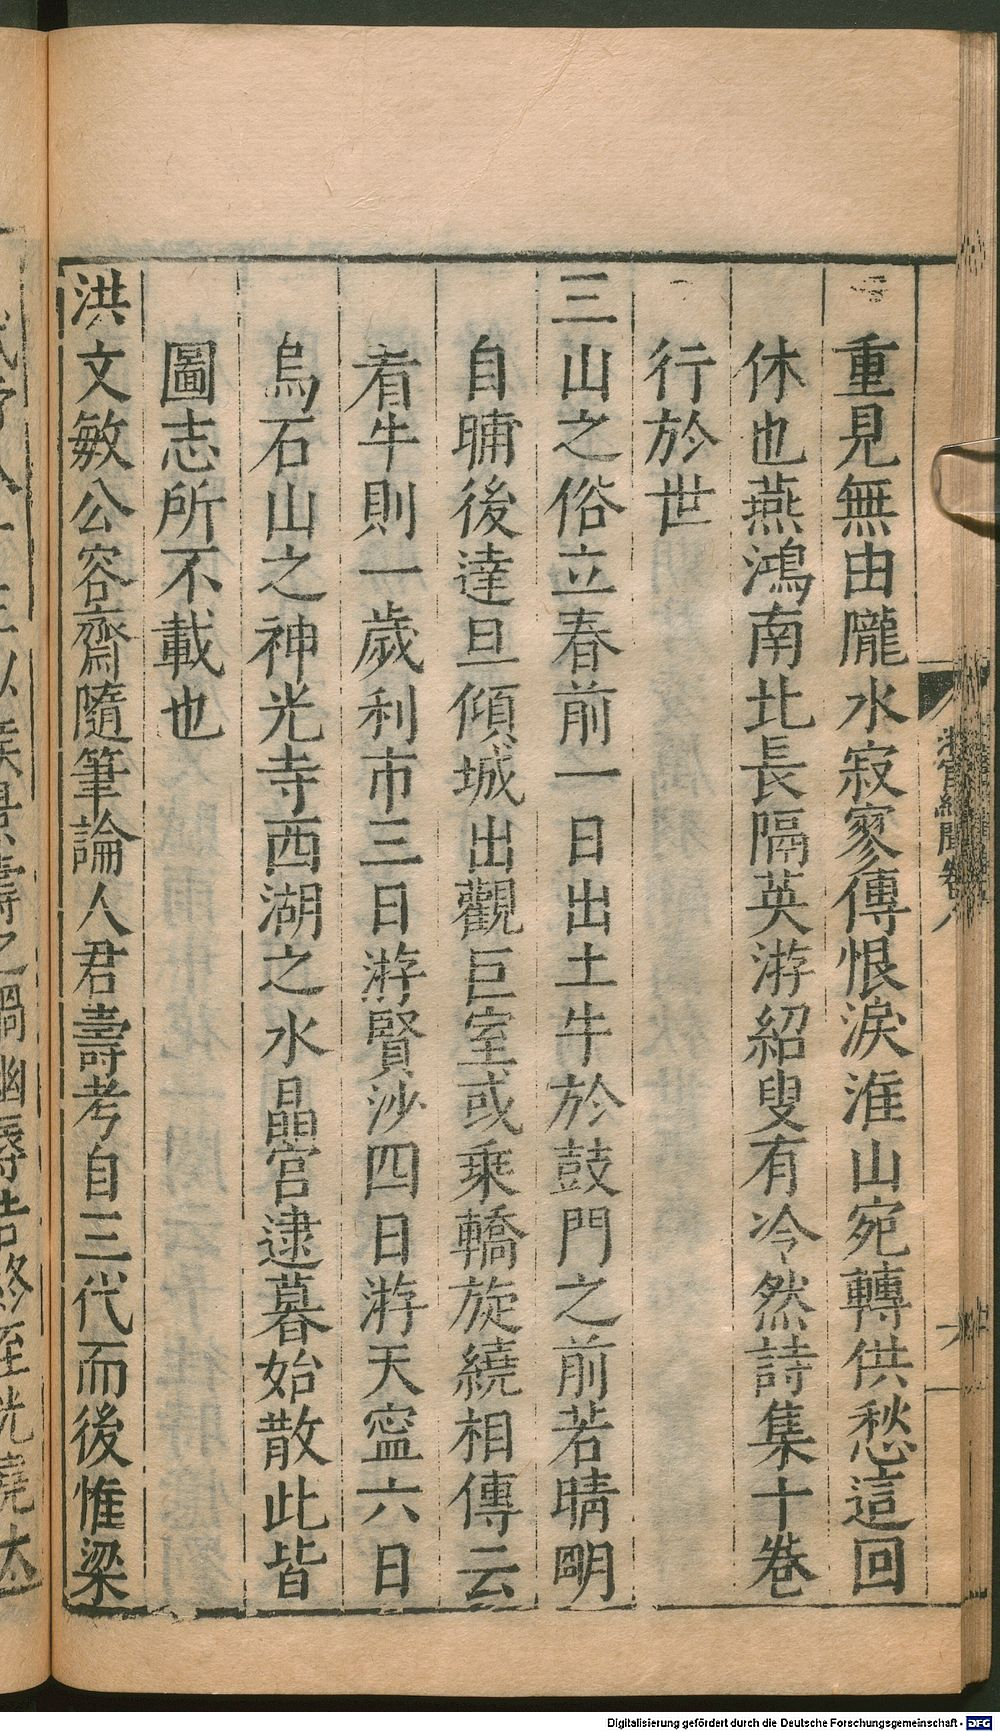 重見無由隴水寂寥傳恨淚淮山宛轉供愁這回
休也燕鴻南北長隔英游紹叟有冷然詩集十卷
行於世
三山之俗立春前一日出土牛於鼓門之前若晴明
自晡後達旦傾城出觀巨室或乗轎旋繞相傳云
看牛則一歲利市三日游賢沙四日游天寍六日
烏石山之神光寺西湖之水晶宮逮暮始散此皆
圖志所不載也
洪文敏公容齋隨筆論人君壽考自三代而後惟梁
游宦紀聞卷八
Digitalisierung gefördert durch die Deutsche Forschungsgemeinschaft - DFG